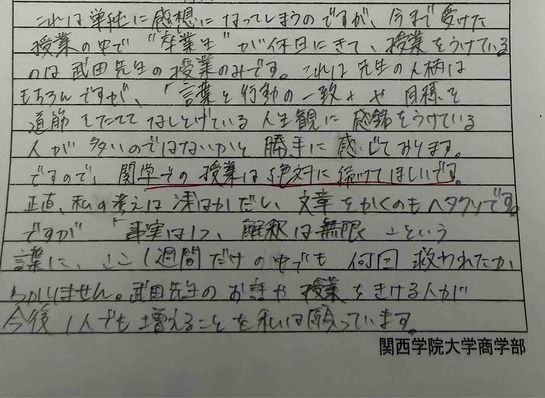 これは単純に感想になってしまうのですが、今まで受けた
授業の中で"卒業生"が休日にきて、授業をうけている
のは武田先生の授業のみです。これは先生の人柄は
もちろんですが、「言葉と行動の一致」や目標を
道筋をたてて なしとげている人生観に感銘をうけている
人が多いのではないかと勝手に感じております。
ですので、関学での授業は絶対に続けてほしいです。
正直、私の考えは浅はかだし、文章をかくのもヘタクソです
ですが「事実は1つ、解釈は無限」という
言葉に、ここ1週間だけの中でも何回救われたか
わかりません。武田先生のお話や授業をきける人が
今後1人でも増えることを私は願っています。
関西学院大学商学部